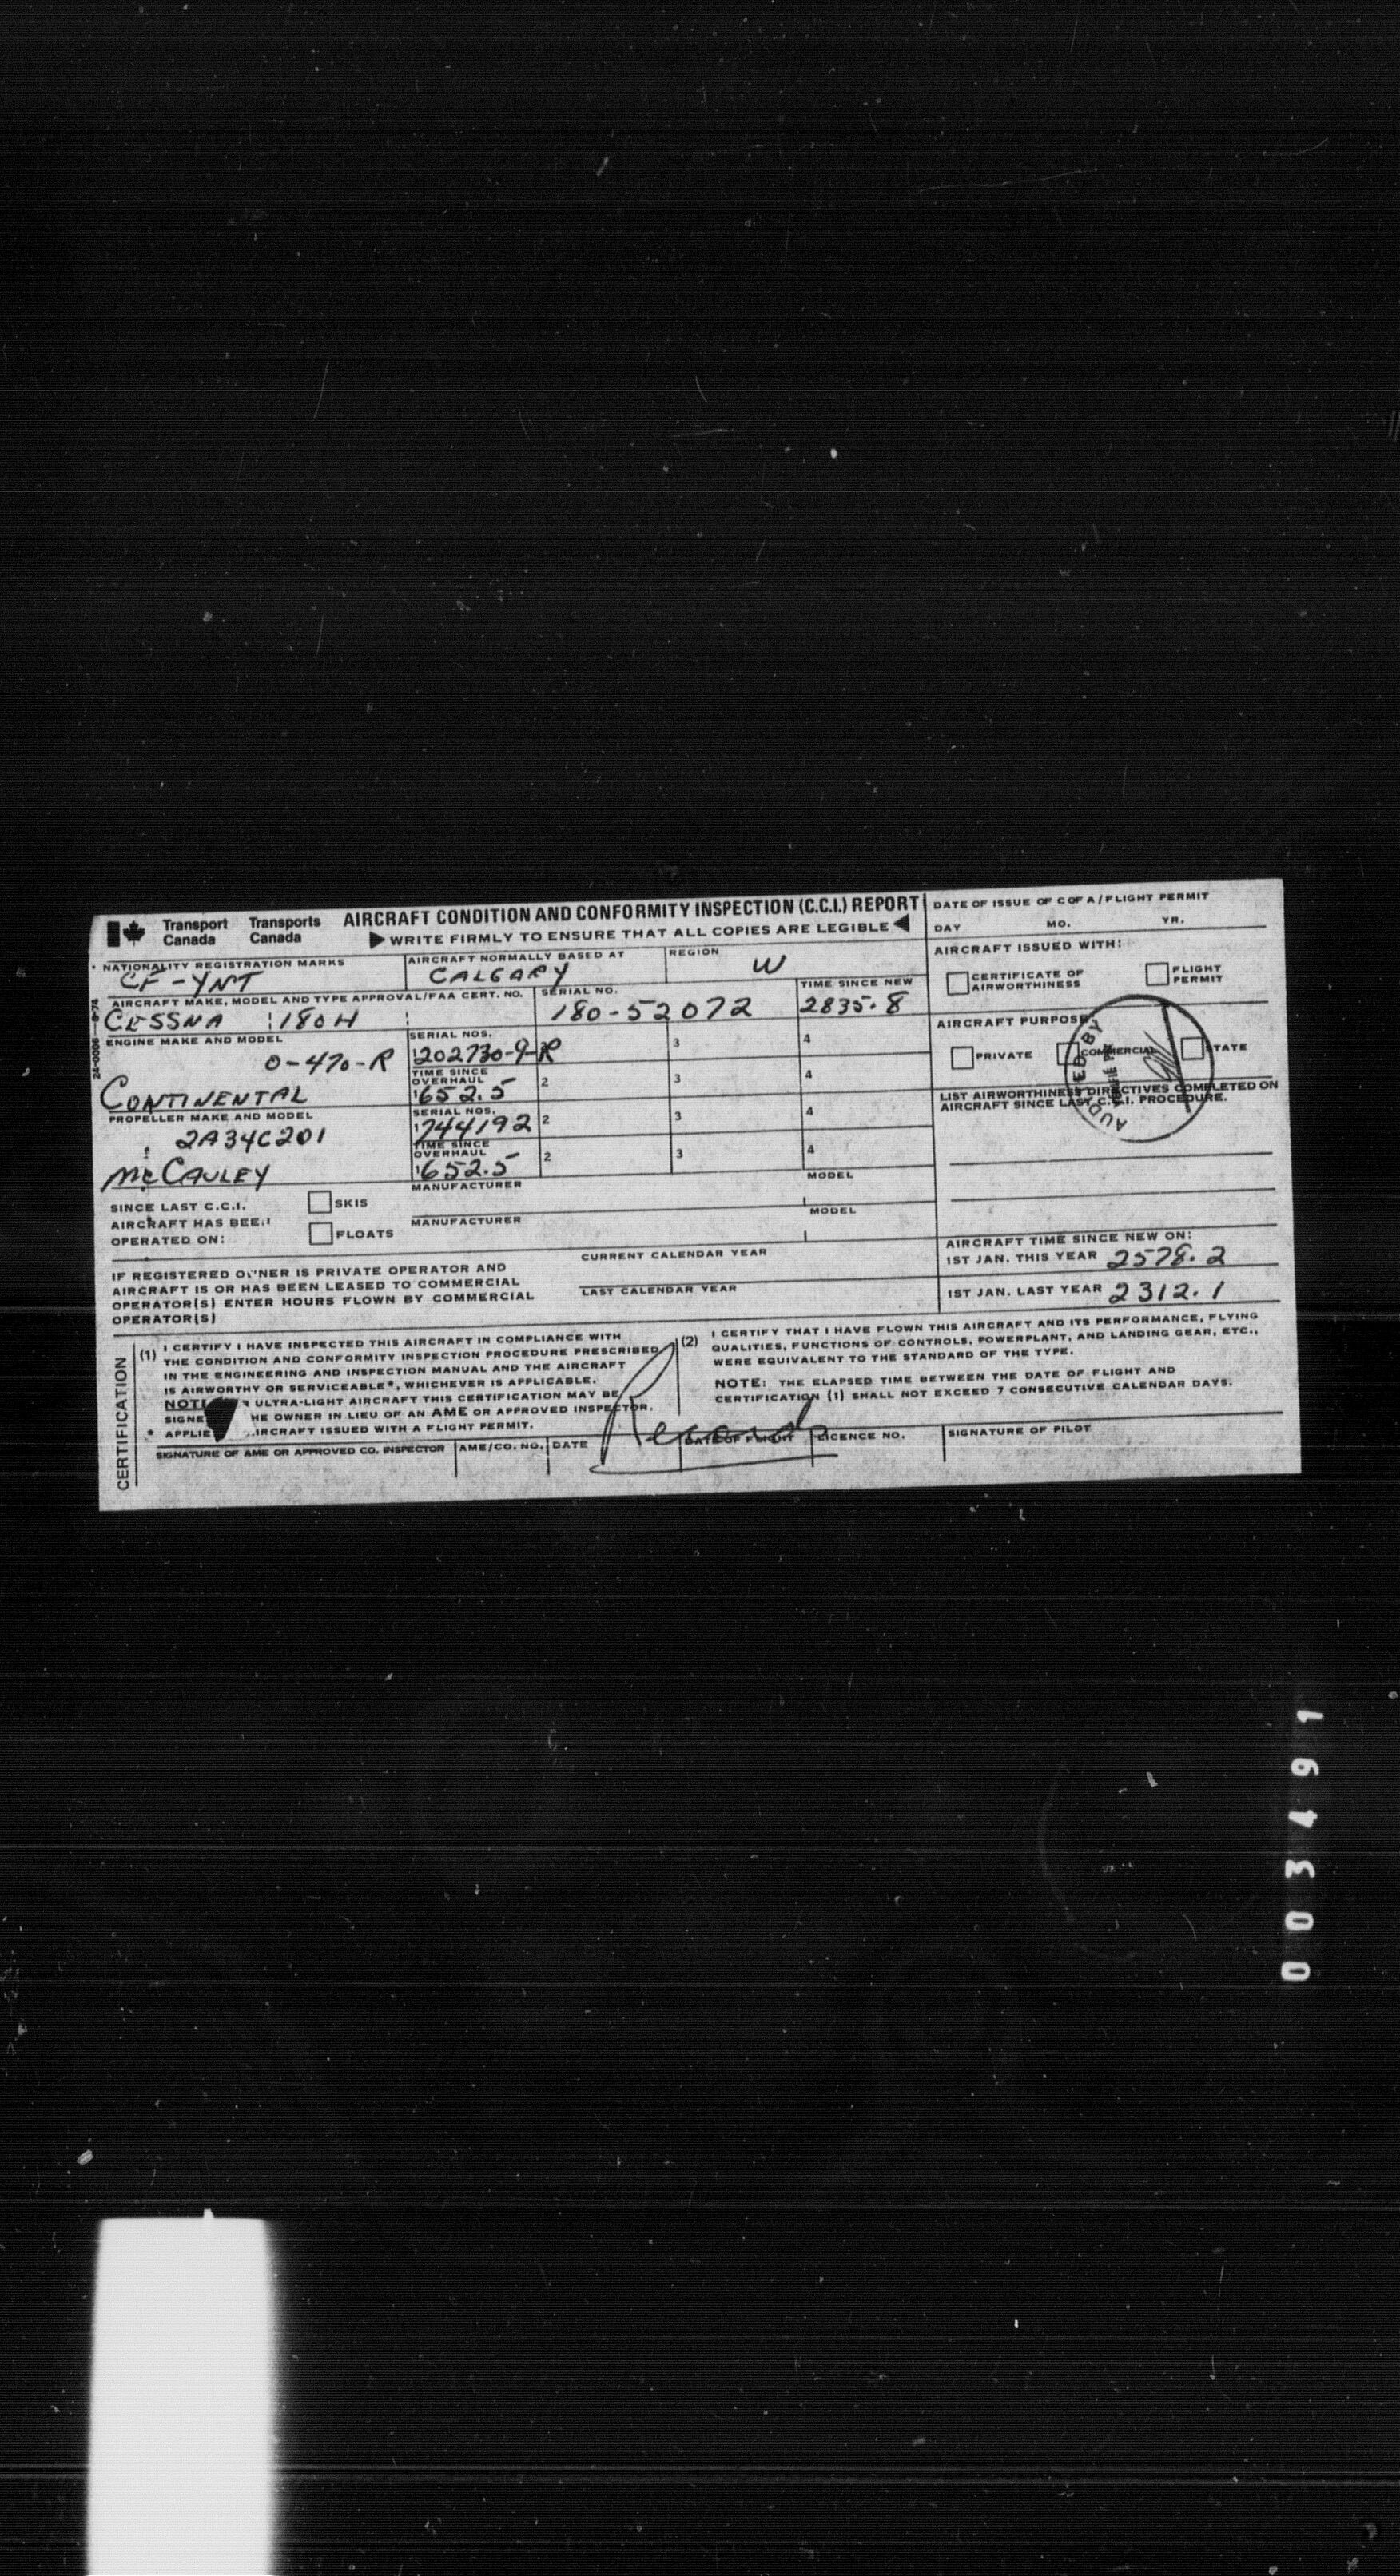 Transport Canada Transports Canada
AIRCRAFT CONDITION AND CONFORMITY INSPECTION (C.C.I.) REPORT
WRITE FIRMLY TO ENSURE THAT ALL COPIES ARE LEGIBLE
DATE OF ISSUE OF C OF A / FLIGHT PERMIT
DAY MO. YR.
NATIONALITY REGISTRATION MARKS
CF-YNT
AIRCRAFT NORMALLY BASED AT
CALGARY
REGION
W
AIRCRAFT ISSUED WITH:
CERTIFICATE OF AIRWORTHINESS
FLIGHT PERMIT
AIRCRAFT MAKE, MODEL AND TYPE APPROVAL/FAA CERT. NO.
CESSNA 180H
SERIAL NO.
180-52072
TIME SINCE NEW
2835.8
AIRCRAFT PURPOSE
PRIVATE COMMERCIAL STATE
AUDITED BY
ENGINE MAKE AND MODEL
O-470-R
CONTINENTAL
SERIAL NOS.
1 202730-9-R 3 4
TIME SINCE OVERHAUL
1 652.5 2 3 4
PROPELLER MAKE AND MODEL
2A34C201
McCAULEY
SERIAL NOS.
1 744192 2 3 4
TIME SINCE OVERHAUL
1 652.5 2 3 4
LIST AIRWORTHINESS DIRECTIVES COMPLETED ON
AIRCRAFT SINCE LAST C.C.I. PROCEDURE.
SINCE LAST C.C.I.
AIRCRAFT HAS BEEN
OPERATED ON:
SKIS
FLOATS
MANUFACTURER MODEL
MANUFACTURER MODEL
IF REGISTERED OWNER IS PRIVATE OPERATOR AND
AIRCRAFT IS OR HAS BEEN LEASED TO COMMERCIAL
OPERATOR(S) ENTER HOURS FLOWN BY COMMERCIAL
OPERATOR(S)
CURRENT CALENDAR YEAR
LAST CALENDAR YEAR
AIRCRAFT TIME SINCE NEW ON:
1ST JAN. THIS YEAR 2578.2
1ST JAN. LAST YEAR 2312.1
CERTIFICATION
(1) I CERTIFY I HAVE INSPECTED THIS AIRCRAFT IN COMPLIANCE WITH
THE CONDITION AND CONFORMITY INSPECTION PROCEDURE PRESCRIBED
IN THE ENGINEERING AND INSPECTION MANUAL AND THE AIRCRAFT
IS AIRWORTHY OR SERVICEABLE*, WHICHEVER IS APPLICABLE.
ULTRA-LIGHT AIRCRAFT THIS CERTIFICATION MAY BE
SIGNE HE OWNER IN LIEU OF AN AME OR APPROVED INSPECTOR.
* APPLIE IRCRAFT ISSUED WITH A FLIGHT PERMIT.
(2) I CERTIFY THAT I HAVE FLOWN THIS AIRCRAFT AND ITS PERFORMANCE, FLYING
QUALITIES, FUNCTIONS OF CONTROLS, POWERPLANT, AND LANDING GEAR, ETC.,
WERE EQUIVALENT TO THE STANDARD OF THE TYPE.
NOTE: THE ELAPSED TIME BETWEEN THE DATE OF FLIGHT AND
CERTIFICATION (1) SHALL NOT EXCEED 7 CONSECUTIVE CALENDAR DAYS.
Records
SIGNATURE OF AME OR APPROVED CO. INSPECTOR AME/CO. NO. DATE DATE OF FLIGHT LICENCE NO. SIGNATURE OF PILOT
003491